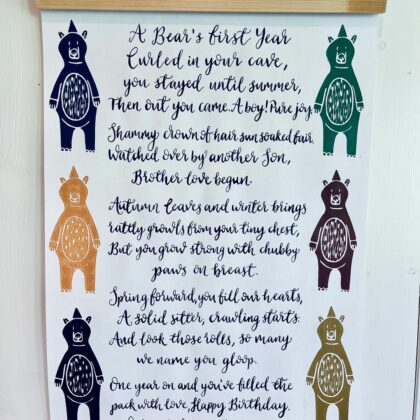 A Bear's first Year
Curled in your cave,
you stayed until summer,
Then out you came. A boy! Pure joy
Shammy crown of hair sun soaked fair.
Watched over by another Son,
Brother love begun.
Autumn leaves and winter brings
rattly growls from your tiny chest,
But you grow strong with chubby
paws on breast.
Spring forward, you fill our hearts,
A solid sitter, crawling starts.
And look those rolls, so many
we name you gloop.
One year on and you've filled the
pack with love, Happy Birthday,